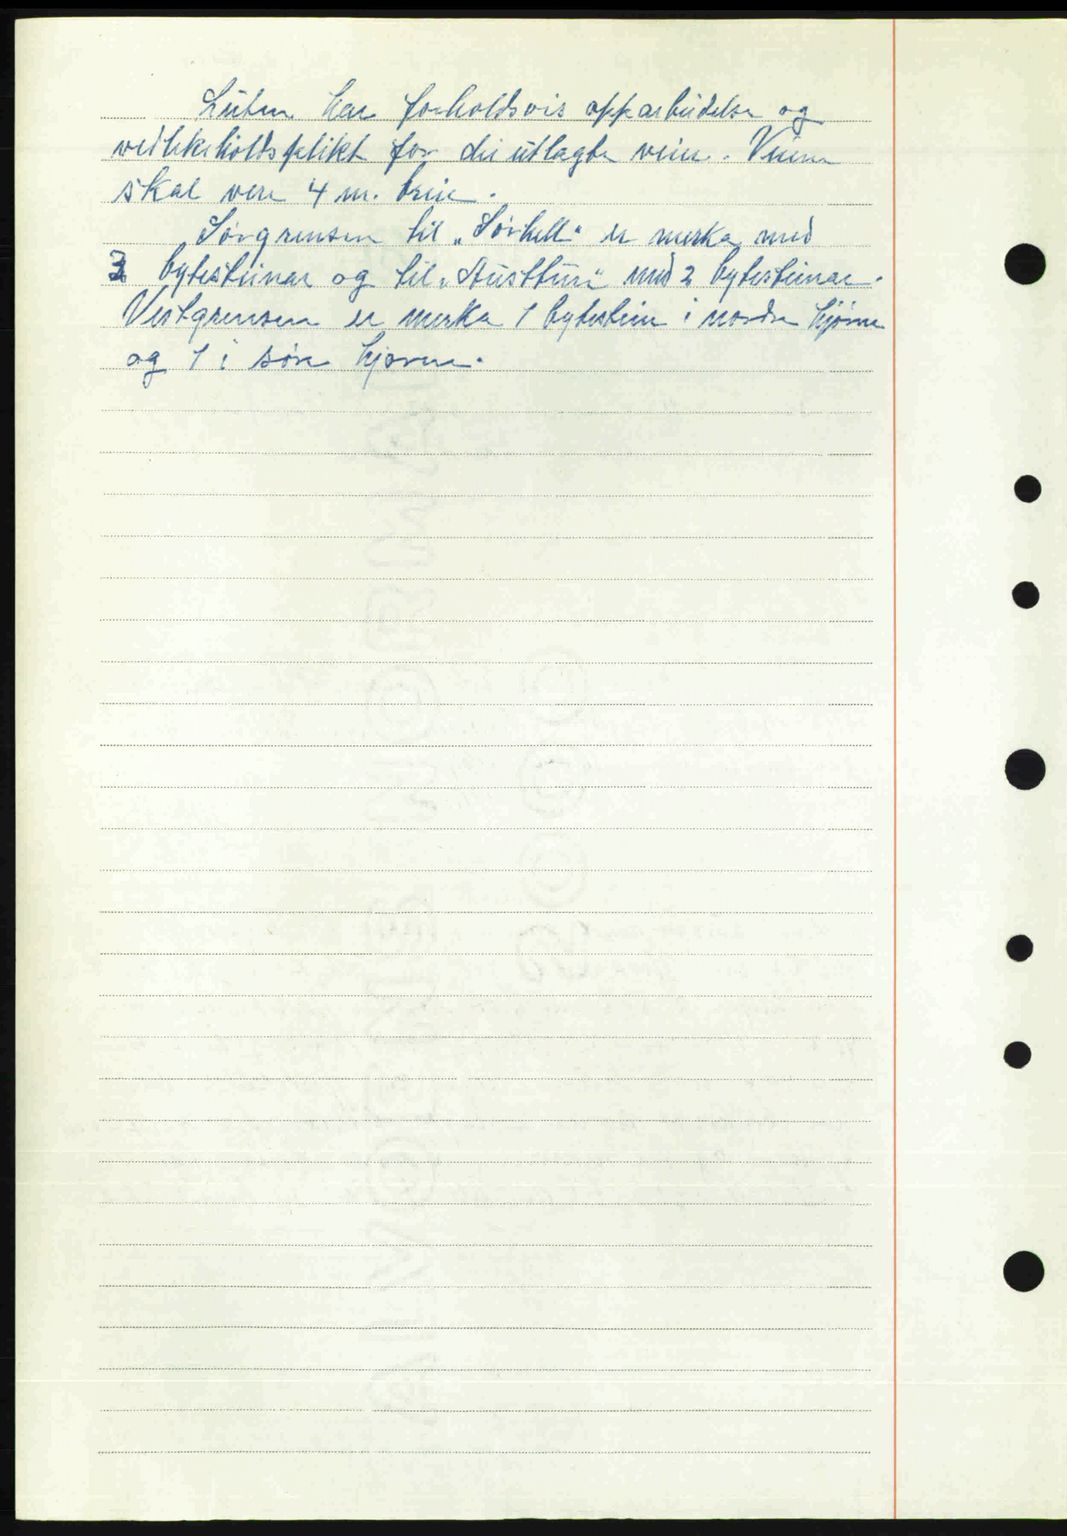 Luten har forholdsvis opparbeidelse og
vedlikeholdsplikt for dei utlagte veier. Veien
skal vere 4 m. brei.
Sørgrensen til „Sørhell“ er merka med
3 bytesteinar og til „Austtun“ med 2 bytesteinar.
Vestgrensen er merka 1 bytestein i nordre hjørne
og 1 i søre hjørne.